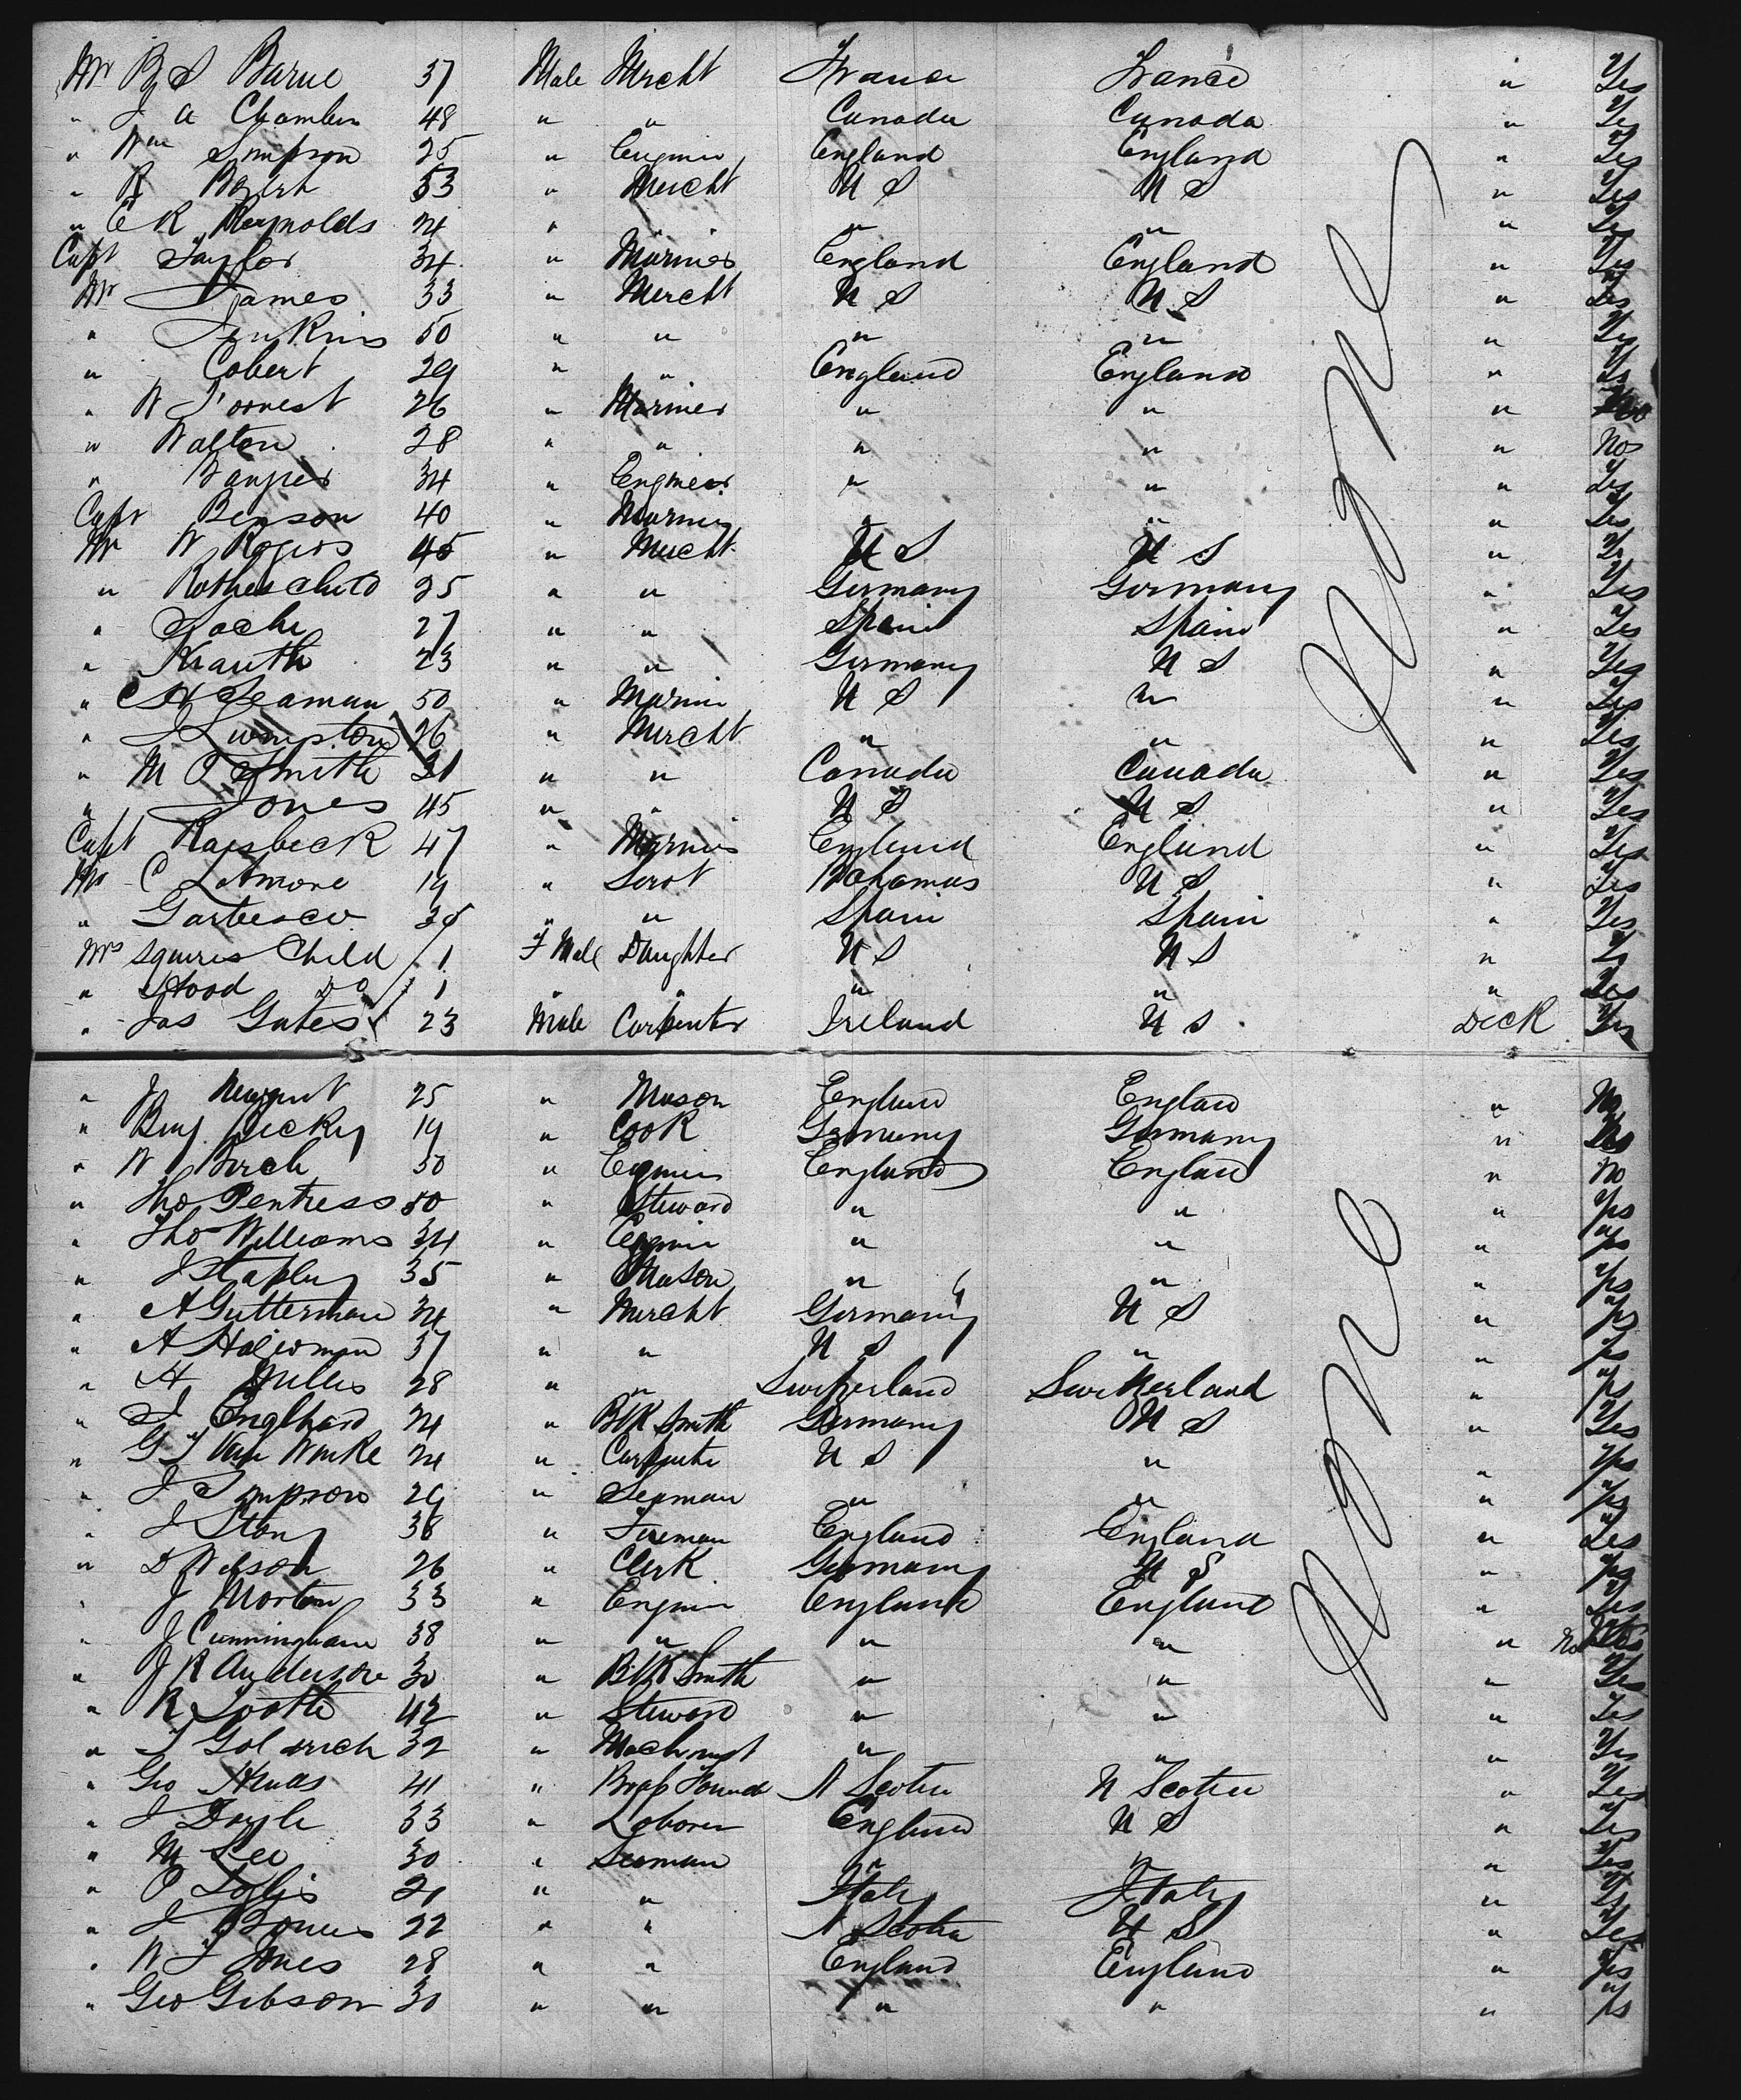 Mr B S Barue 37 Male Mercht France France " Yes
" J A Chamber 48 " " Canada Canada " Yes
" Wm Simpson 25 " Engineer England England " Yes
" R 53 " Mercht U S U S " Yes
" E K Reynolds 24 " " " " Yes
Capt Taylor 34 " Mariner England England " Yes
Mr James 33 " Mercht U S U S " Yes
" Jenkins 50 " " " " " Yes
" Cobert 29 " " England England " Yes
" W Forrest 26 " Mariner " " "
" Walton 28 " " " " " No
" 34 " Engineer " " " Yes
Capt Benson 40 " Mariner " " " Yes
Mr W Rogers 45 " Mercht U S U S " Yes
" Rothes child 25 " " Germany Germany " Yes
" Sache 27 " " Spain Spain " Yes
" Krauth 23 " " Germany U S " Yes
" C H Seaman 50 " Marine U S " " Yes
" J Lumpton 26 " Mercht " " " Yes
" M O Smith 31 " " Canada Canada " Yes
" Jones 45 " " U S U S " Yes
Capt Raisbeck 47 " Mariner England England " Yes
Mr C Latmore 19 " Servt Bahamas U S " Yes
" 35 " " Spain Spain " Yes
Mrs Squires Child 1 F Male Daughter U S U S " Yes
" Hood Do 1 " " " " " Yes
" Jas Gates 23 Male Carpenter Ireland U S Deck Yes
None
" J 25 " Mason England England " No
" Benj. 19 " Cook Germany Germany "
" W Birch 50 " Engineer England England " No
" Tho Pentress 50 " Steward " " " Yes
" Tho Williams 34 " Engineer " " " Yes
" J Stapley 35 " Mason " " " Yes
" A Gutterman 34 " Mercht Germany U S " Yes
" A 37 " " U S " " Yes
" H Mulles 28 " " Switzerland Switzerland " Yes
" J Englhard 24 " Blk Smith Germany U S " Yes
" G T Van Winkle 24 " Carpenter U S " " Yes
" J Simpson 29 " Seaman " " " Yes
" J Stony 38 " Fireman England England " Yes
" D Wilson 26 " Clerk Germany U S " Yes
" J Morton 33 " Engineer England England " Yes
" J Cunningham 38 " " " " " No
" J R Anderson 30 " Blk Smith " " " Yes
" R Tootte 42 " Steward " " " Yes
" T Goldrich 32 " Machinist " " " Yes
" Geo 41 " Brass Found N Scotia N Scotia " Yes
" J Doyle 33 " Laborer England U S " Yes
" M Lee 30 " Seaman " " " Yes
" P 21 " " Italy Italy " Yes
" J Bones 22 " " N Scotia U S " Yes
" W T Jones 28 " " England England " Yes
" Geo Gibson 30 " " " " " Yes
None